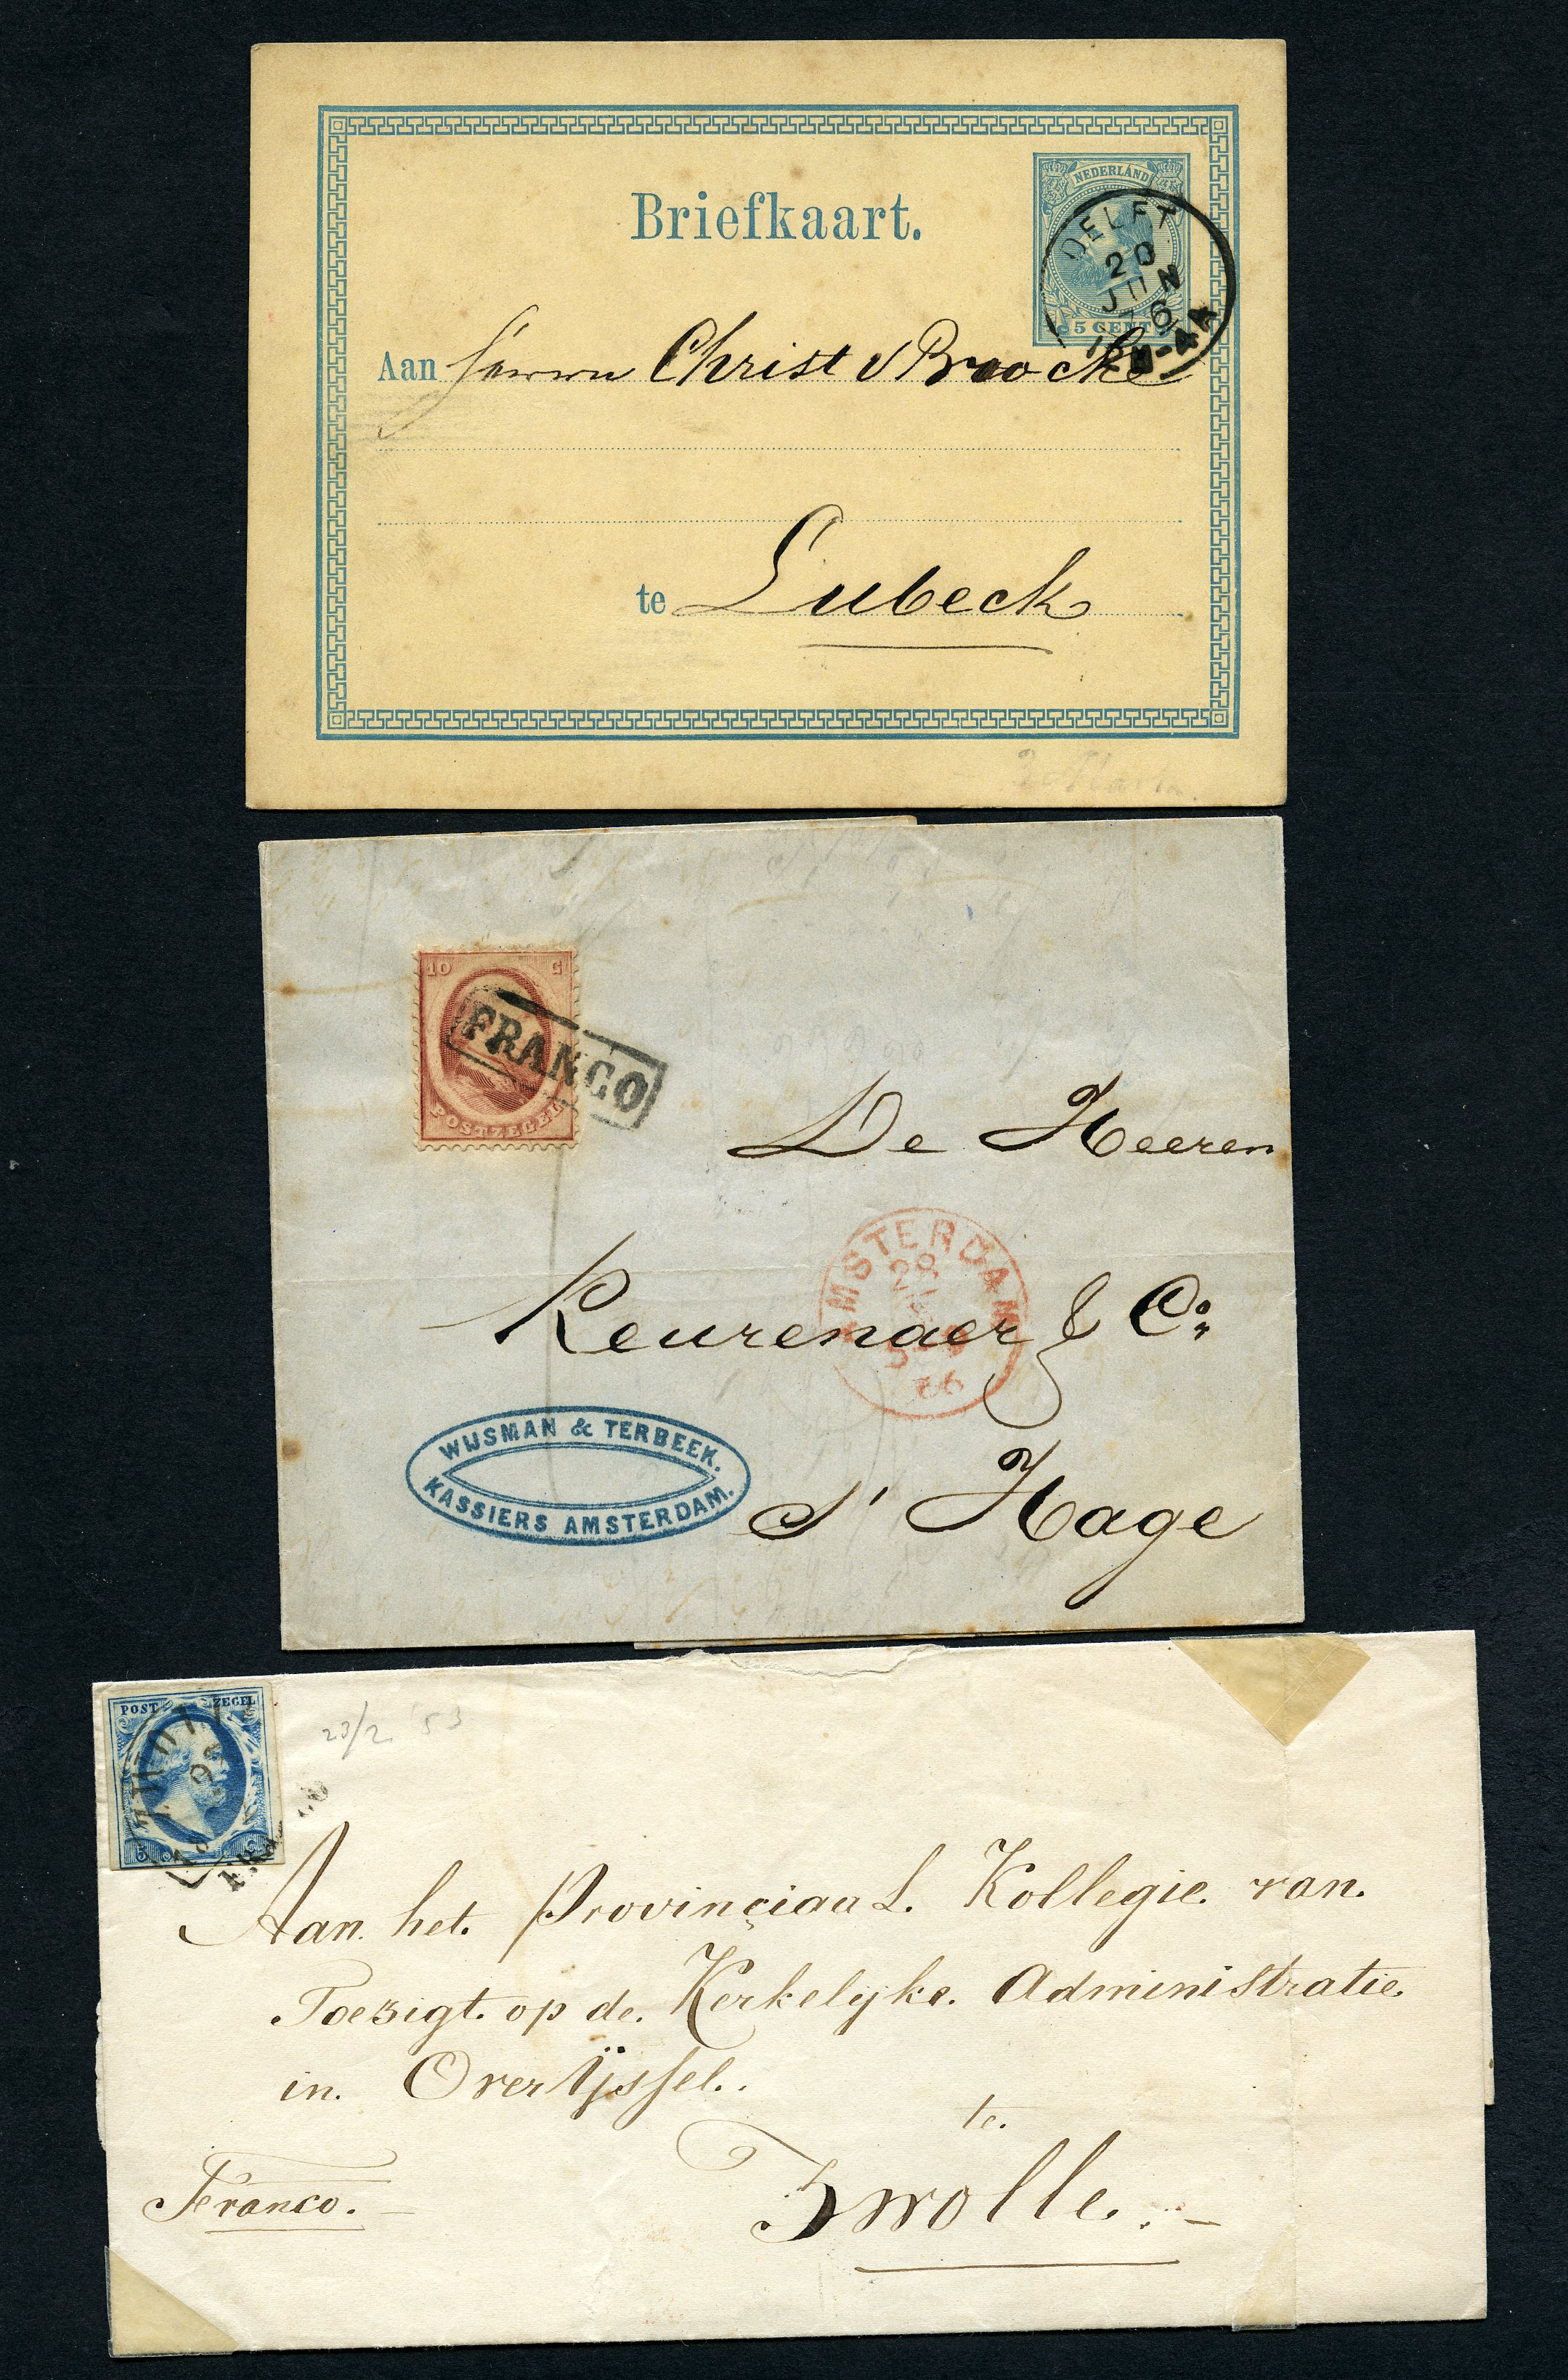 Briefkaart.
NEDERLAND
5 CENT
DELFT
20
JUN
76
Aan Herrn Christ v Broocke
te Lubeck
10 C
POSTZEGEL
FRANCO
De Heeren
AMSTERDAM
28
66
Keurenaer & Co
WIJSMAN & TERBEEK.
KASSIERS AMSTERDAM.
s' Hage
POST ZEGEL
5 5
23/2 '53
Aan het Provinciaal Kollegie van
Toezigt op de Kerkelijke Administratie
in OverIjssel.
te
Zwolle.
Franco.